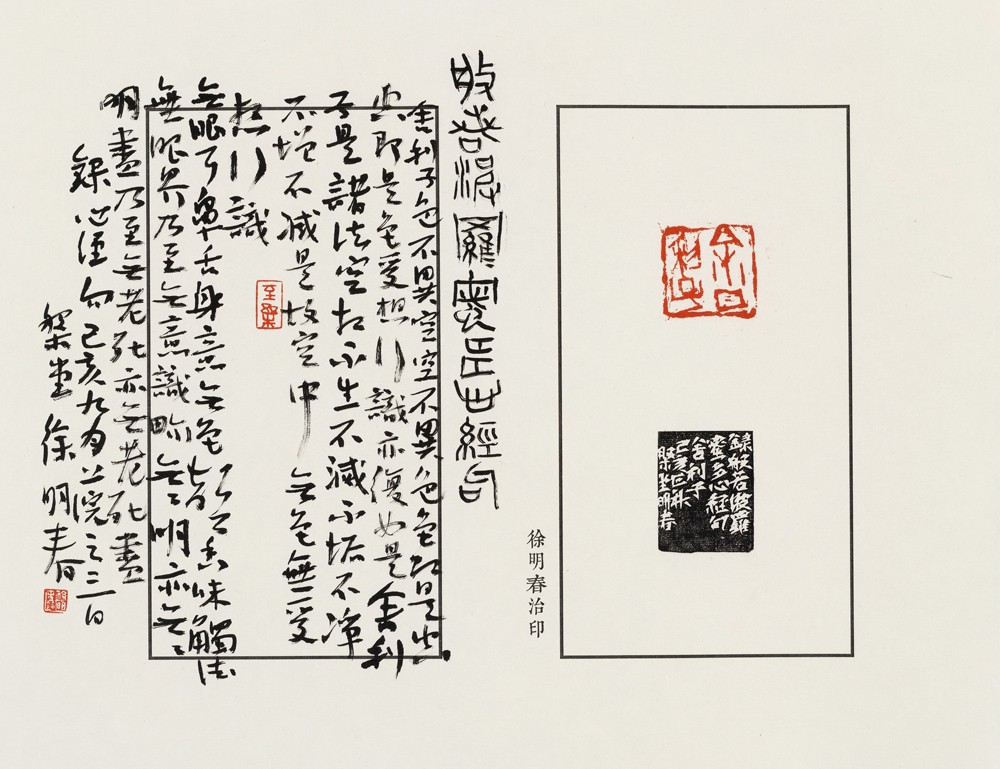 舍利子
錄般若波羅
蜜多心經句
舍利子
徐明春治印
般若波羅蜜多心經句
舍利子色不異空空不異色色即是空
空即是色受想行識亦復如是舍利
子是諸法空相不生不滅不垢不淨
不增不減是故空中無色無受
想行識
至樂
無眼耳鼻舌身意無色聲香味觸法
無眼界乃至無意識界無無明亦無無
明盡乃至無老死亦無老死盡
錄心經句己亥九月上浣之三日
槃堂徐明春